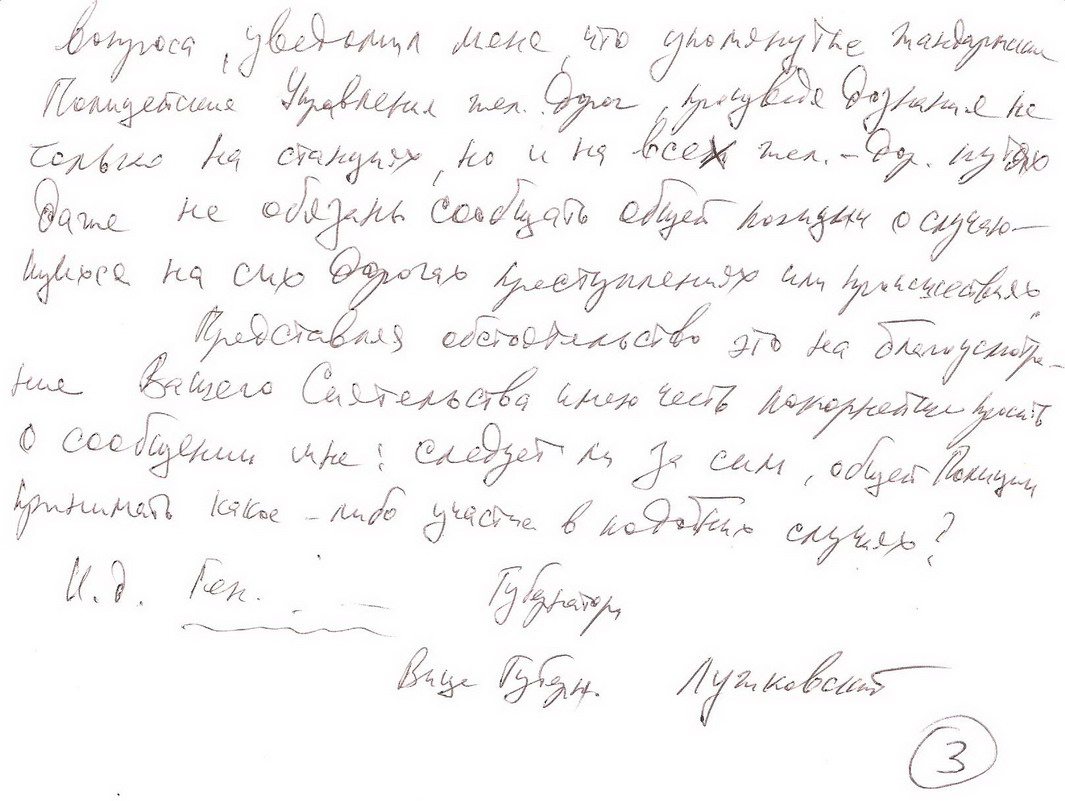 вопроса, уведомил меня, что упомянутые жандармские
Полицейские Управления жел. Дорог, производя дознания не
только на станциях, но и на всех жел. - дор. путях
даже не обязаны сообщать общей полиции о случаю-
щихся на сих дорогах преступлениях или происшествиях"
Представляя обстоятельство это на благоусмотре-
ние Вашего Сиятельства имею честь покорнейше просить
о сообщении мне: следует ли за сим, общей Полиции
принимать какое - либо участие в подобных случаях?
И. д. Ген. Губернатора
Вице Губерн.
3